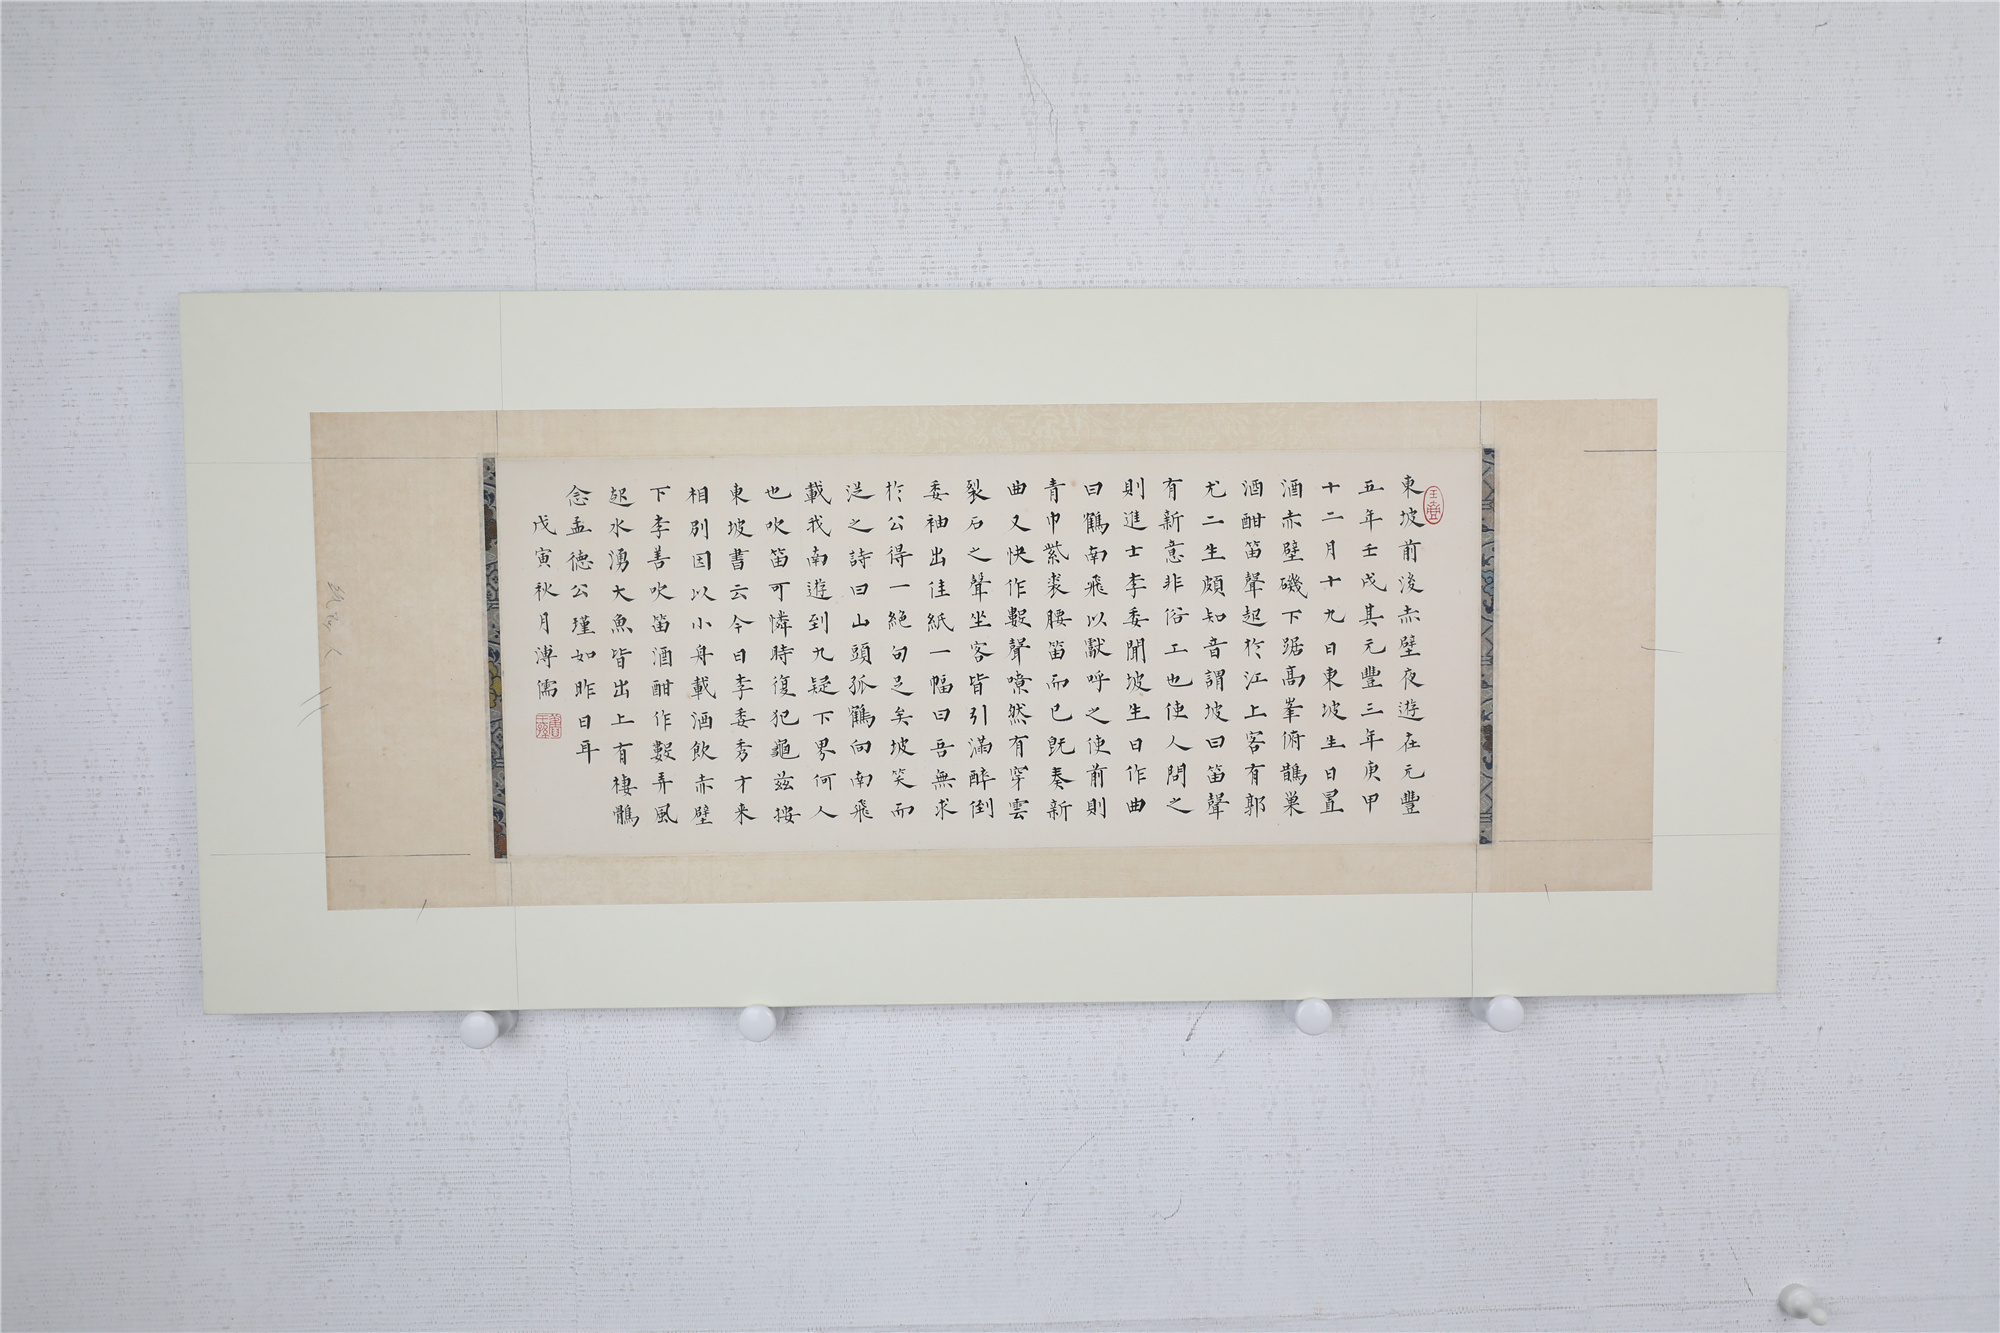 東坡前後赤壁夜遊在元豐
五年壬戌其元豐三年庚甲
十二月十九日東坡生日置
酒赤壁磯下踞高峯俯鶻巢
酒酣笛聲起於江上客有郭
尤二生頗知音謂坡曰笛聲
有新意非俗工也使人問之
則進士李委聞坡生日作曲
曰鶴南飛以獻呼之使前則
青巾紫裘腰笛而已既奏新
曲又快作數聲嘹然有穿雲
裂石之聲坐客皆引滿醉倒
委袖出佳紙一幅曰吾無求
於公得一絕句足矣坡笑而
從之詩曰山頭孤鶴向南飛
載我南遊到九疑下界何人
也吹笛可憐時復犯龜茲按
東坡書云今日李委秀才来
相別因以小舟載酒飲赤壁
下李善吹笛酒酣作數弄風
起水湧大魚皆出上有棲鶻
念孟德公瑾如昨日耳
戊寅秋月溥儒